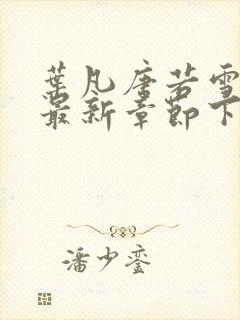 葉凡唐若雪
最新章節下
潘少鑾